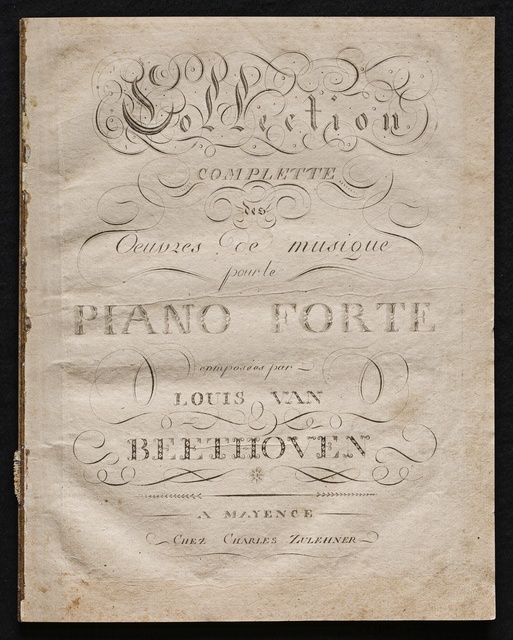 Collection
COMPLETTE
des
Oeuvres de musique
pour le
PIANO FORTE
composées par
LOUIS VAN
BEETHOVEN
A MAYENCE
CHEZ CHARLES ZULEHNER